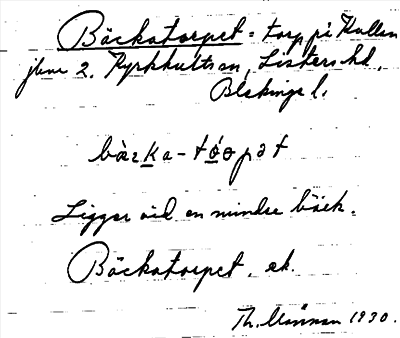 Bäckatorpet = torp på Kullen
2. Kyrkhults sn, Listers hd,
Blekinge l.
Ligger vid en mindre bäck.
Bäckatorpet. ek.
Th. 1930.